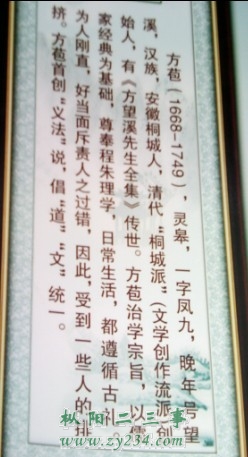 方苞(1668-1749)，灵皋，一字凤九，晚年号望
溪，汉族，安徽桐城人，清代“桐城派”(文学创作流派创
始人，有《方望溪先生全集》传世。方苞治学宗旨，以儒
家经典为基础，尊奉程朱理学，日常生活，都遵循古礼
为人刚直，好当面斥责人之过错，因此，受到一些人的排
挤。方苞首创“义法”说，倡“道”“文”统一。
枞阳二三事
www.zy234.com